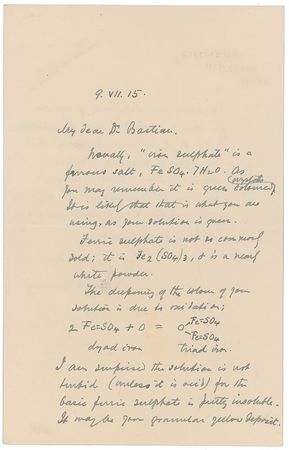 9. VII. 15.
My dear Dr Bastian,
Usually, "iron sulphate" is a
ferrous salt, FeSO4. 7H2O. As
crystals
you may remember it is green coloured,
It is likely that that is what you are
using, as your solution is green.
Ferric sulphate is not so commonly
sold; it is Fe2(SO4)3, & is a nearly
white powder.
The deepening of the colour of your
solution is due to oxidation;
2 FeSO4 + O = O FeSO4
FeSO4
dyad iron triad iron.
I am surprised the solution is not
turbid (unless it is acid) for the
basic ferric sulphate is pretty insoluble.
It may be your granular yellow deposit.